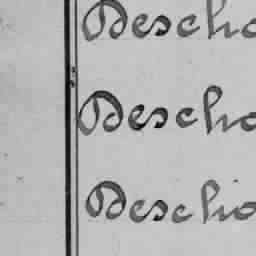 Descho
Descho
Deschio